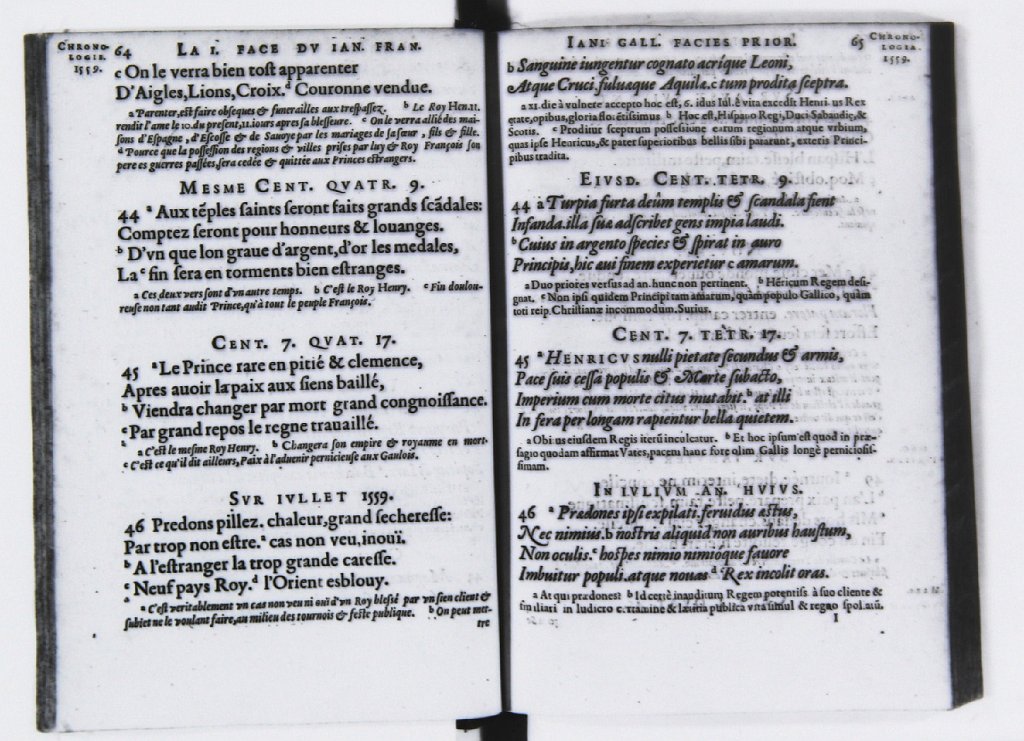 CHRONO-
LOGIE.
1559.
64 LA I. FACE DV IAN. FRAN.
c On le verra bien tost apparenter
D'Aigles, Lions, Croix.d Couronne vendue.
a Parenter, est faire obseques & funerailles aux trespassez. b Le Roy Hen. II.
rendit l'ame le 10. du present, 11. iours apres sa blesseure. c On le verra allié des mai-
sons d'Espagne, d'Escosse & de Sauoye par les mariages de sa sœur, fils & fille.
d Pource que la possession des regions & villes prises par luy & Roy François son
pere es guerres passées, sera cedée & quittée aux Princes estrangers.
MESME CENT. QVATR. 9.
44 a Aux tẽples saints seront faits grands scãdales:
Comptez seront pour honneurs & louanges.
b D'vn que lon graue d'argent, d'or les medales,
La c fin sera en torments bien estranges.
a Ces deux vers sont d'vn autre temps. b C'est le Roy Henry. c Fin doulou-
reuse non tant audit Prince, qu'à tout le peuple François.
CENT. 7. QVAT. 17.
45 a Le Prince rare en pitié & clemence,
Apres auoir la paix aux siens baillé,
b Viendra changer par mort grand congnoissance.
c Par grand repos le regne trauaillé.
a C'est le mesme Roy Henry. b Changera son empire & royaume en mort.
c C'est ce qu'il dit ailleurs, Paix à l'aduenir pernicieuse aux Gaulois.
SVR IVLLET 1559.
46 Predons pillez. chaleur, grand secheresse:
Par trop non estre.a cas non veu, inouï.
b A l'estranger la trop grande caresse.
c Neuf pays Roy.d l'Orient esblouy.
a C'est veritablement vn cas non veu ni ouï d'vn Roy blessé par vn sien client &
subiet ne le voulant faire, au milieu des tournois & feste publique. b On peut met-
tre
IANI GALL. FACIES PRIOR. 65
CHRONO-
LOGIA.
1559.
b Sanguine iungentur cognato acrique Leoni,
Atque Cruci, fuluaque Aquilæ.c tum prodita sceptra.
a XI. die à vulnere accepto hoc est, 6. idus Iul. è vita excedit Henri. us Rex
ętate, opibus, gloria florẽtissimus. b Hoc est, Hispano Regi, Duci Sabaudię, &
Scotis. c Proditur sceptrum possessione earum regionum atque vrbium,
quas ipse Henricus, & pater superioribus bellis sibi pararunt, exteris Princi-
pibus tradita.
EIVSD. CENT. TETR. 9.
44 a Turpia furta deûm templis & scandala fient
Infanda. illa suæ adscribet gens impia laudi.
b Cuius in argento species & spirat in auro
Principis, hic æui finem experietur c amarum.
a Duo priores versus ad an. hunc non pertinent. b Hẽricum Regem desi-
gnat. c Non ipsi quidem Principi tam amarum, quàm populo Gallico, quàm
toti reip. Christianæ incommodum. Surius.
CENT. 7. TETR. 17.
45 a HENRICVS nulli pietate secundus & armis,
Pace suis cessa populis & Marte subacto,
Imperium cum morte citus mutabit.b at illi
In fera per longam rapientur bella quietem.
a Obitus eiusdem Regis iterũ inculcatur. b Et hoc ipsum est quod in præ-
sagio quodam affirmat Vates, pacem hanc fore olim Gallis longè perniciosis-
simam.
IN IVLIVM AN. HVIVS.
46 a Prædones ipsi expilati. feruidus æstus,
Nec nimius.b nostris aliquid non auribus haustum,
Non oculis.c hospes nimio nimióque fauore
Imbuitur populi. atque nouas d Rex incolit oras.
a At qui prædones? b Id certè inauditum, Regem potentiss. à suo cliente &
familiari in ludicro certamine & lætitia publica vita simul & regno spoliatũ.
I